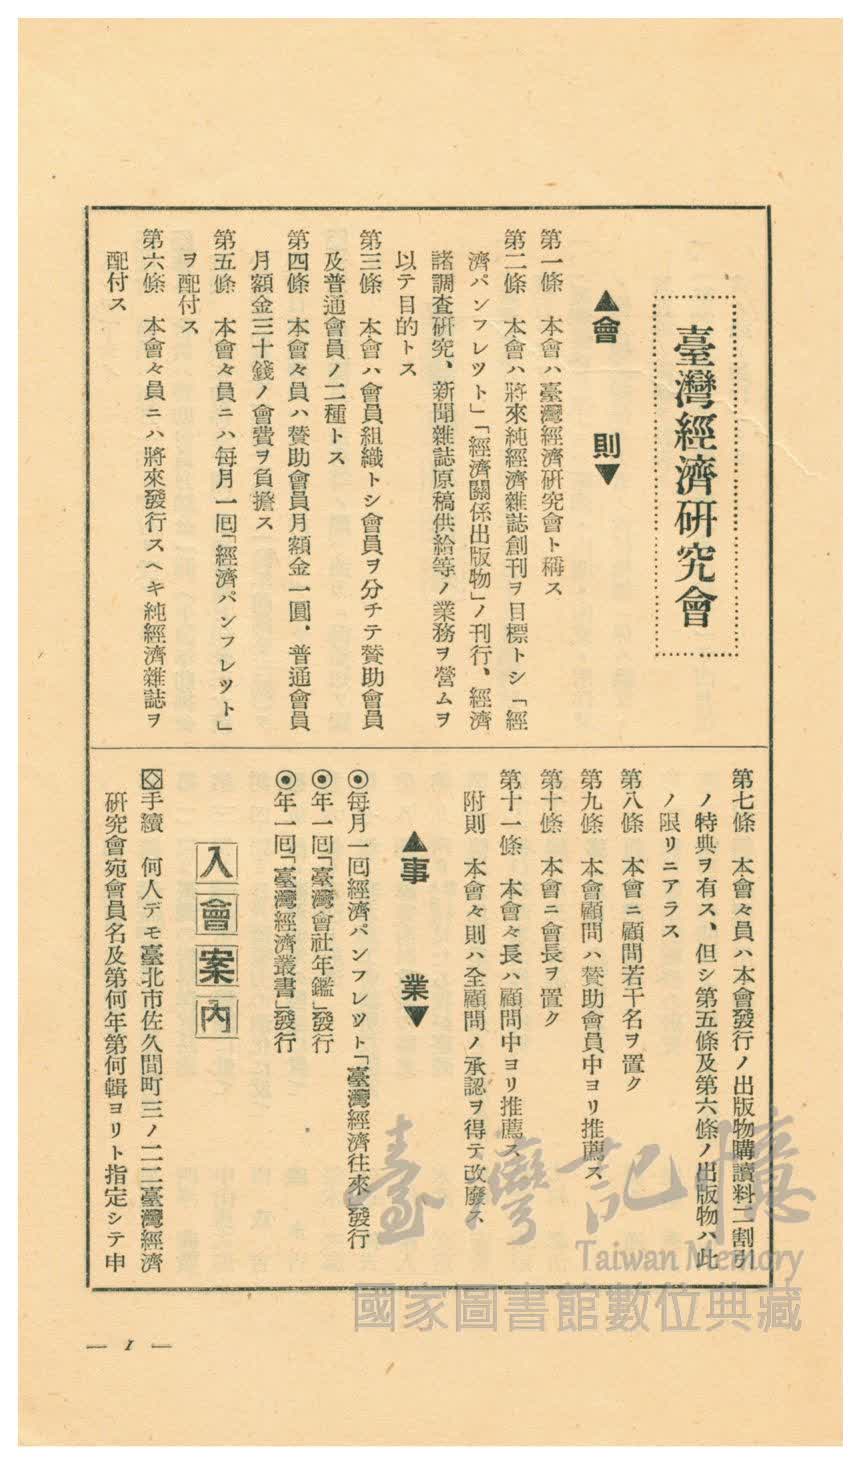 臺灣經濟研究會
▲會則▼
第一條　本會ハ臺灣經濟研究會ト稱ス
第二條　本會ハ將來純經濟雜誌創刊ヲ目標トシ「經
濟パンフレツト」「經濟關係出版物」ノ刊行、經濟
諸調査研究、新聞雜誌原稿供給等ノ業務ヲ營ムヲ
以テ目的トス
第三條　本會ハ會員組織トシ會員ヲ分チテ贊助會員
及普通會員ノ二種トス
第四條　本會々員ハ贊助會員月額金一圓．普通會員
月額金三十錢ノ會費ヲ負擔ス
第五條　本會々員ニハ每月一囘「經濟パンフレツト」
ヲ配付ス
第六條　本會々員ニハ將來發行スヘキ純經濟雜誌ヲ
配付ス
第七條　本會々員ハ本會發行ノ出版物購讀料二割引
ノ特典ヲ有ス、但シ第五條及第六條ノ出版物ハ此
ノ限リニアラス
第八條　本會ニ顧問若干名ヲ置ク
第九條　本會顧問ハ贊助會員中ヨリ推薦ス
第十條　本會ニ會長ヲ置ク
第十一條　本會々長ハ顧問中ヨリ推薦ス
附則　本會々則ハ全顧問ノ承認ヲ得テ改廢ス
▲事業▼
◉每月一囘經濟パンフレツト「臺灣經濟往來」發行
◉年一囘「臺灣會社年鑑」發行
◉年一囘「臺灣經濟叢書」發行
入會案內
手續　何人デモ臺北市佐久間町三ノ二二臺灣經濟
研究會宛會員名及第何年第何輯ヨリト指定シテ申
— 1 —
臺灣記憶
Taiwan Memory
國家圖書館數位典藏